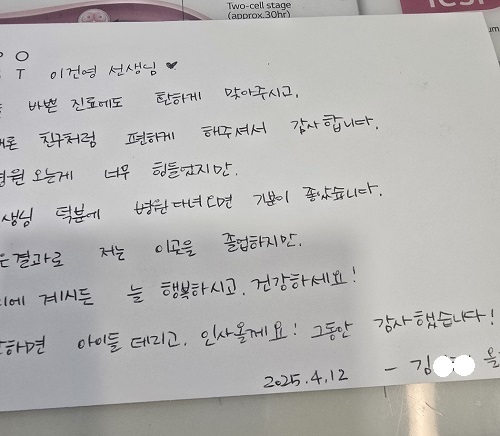 Two-cell stage
(approx.30hr)
P O
S T 이건영 선생님 ♥
바쁜 진료에도 탄하게 맞아주시고,
친구처럼 편하게 해주셔서 감사합니다.
병원 오는게 너무 힘들었지만.
생님 덕분에 병원다녀오면 기분이 좋았습니다.
은결과로 저는 이곳을 졸업하지만.
에 계시든 늘 행복하시고. 건강하세요!
하면 아이들 데리고. 인사올게요! 그동안 감사했습니다!
2025.4.12 - 김